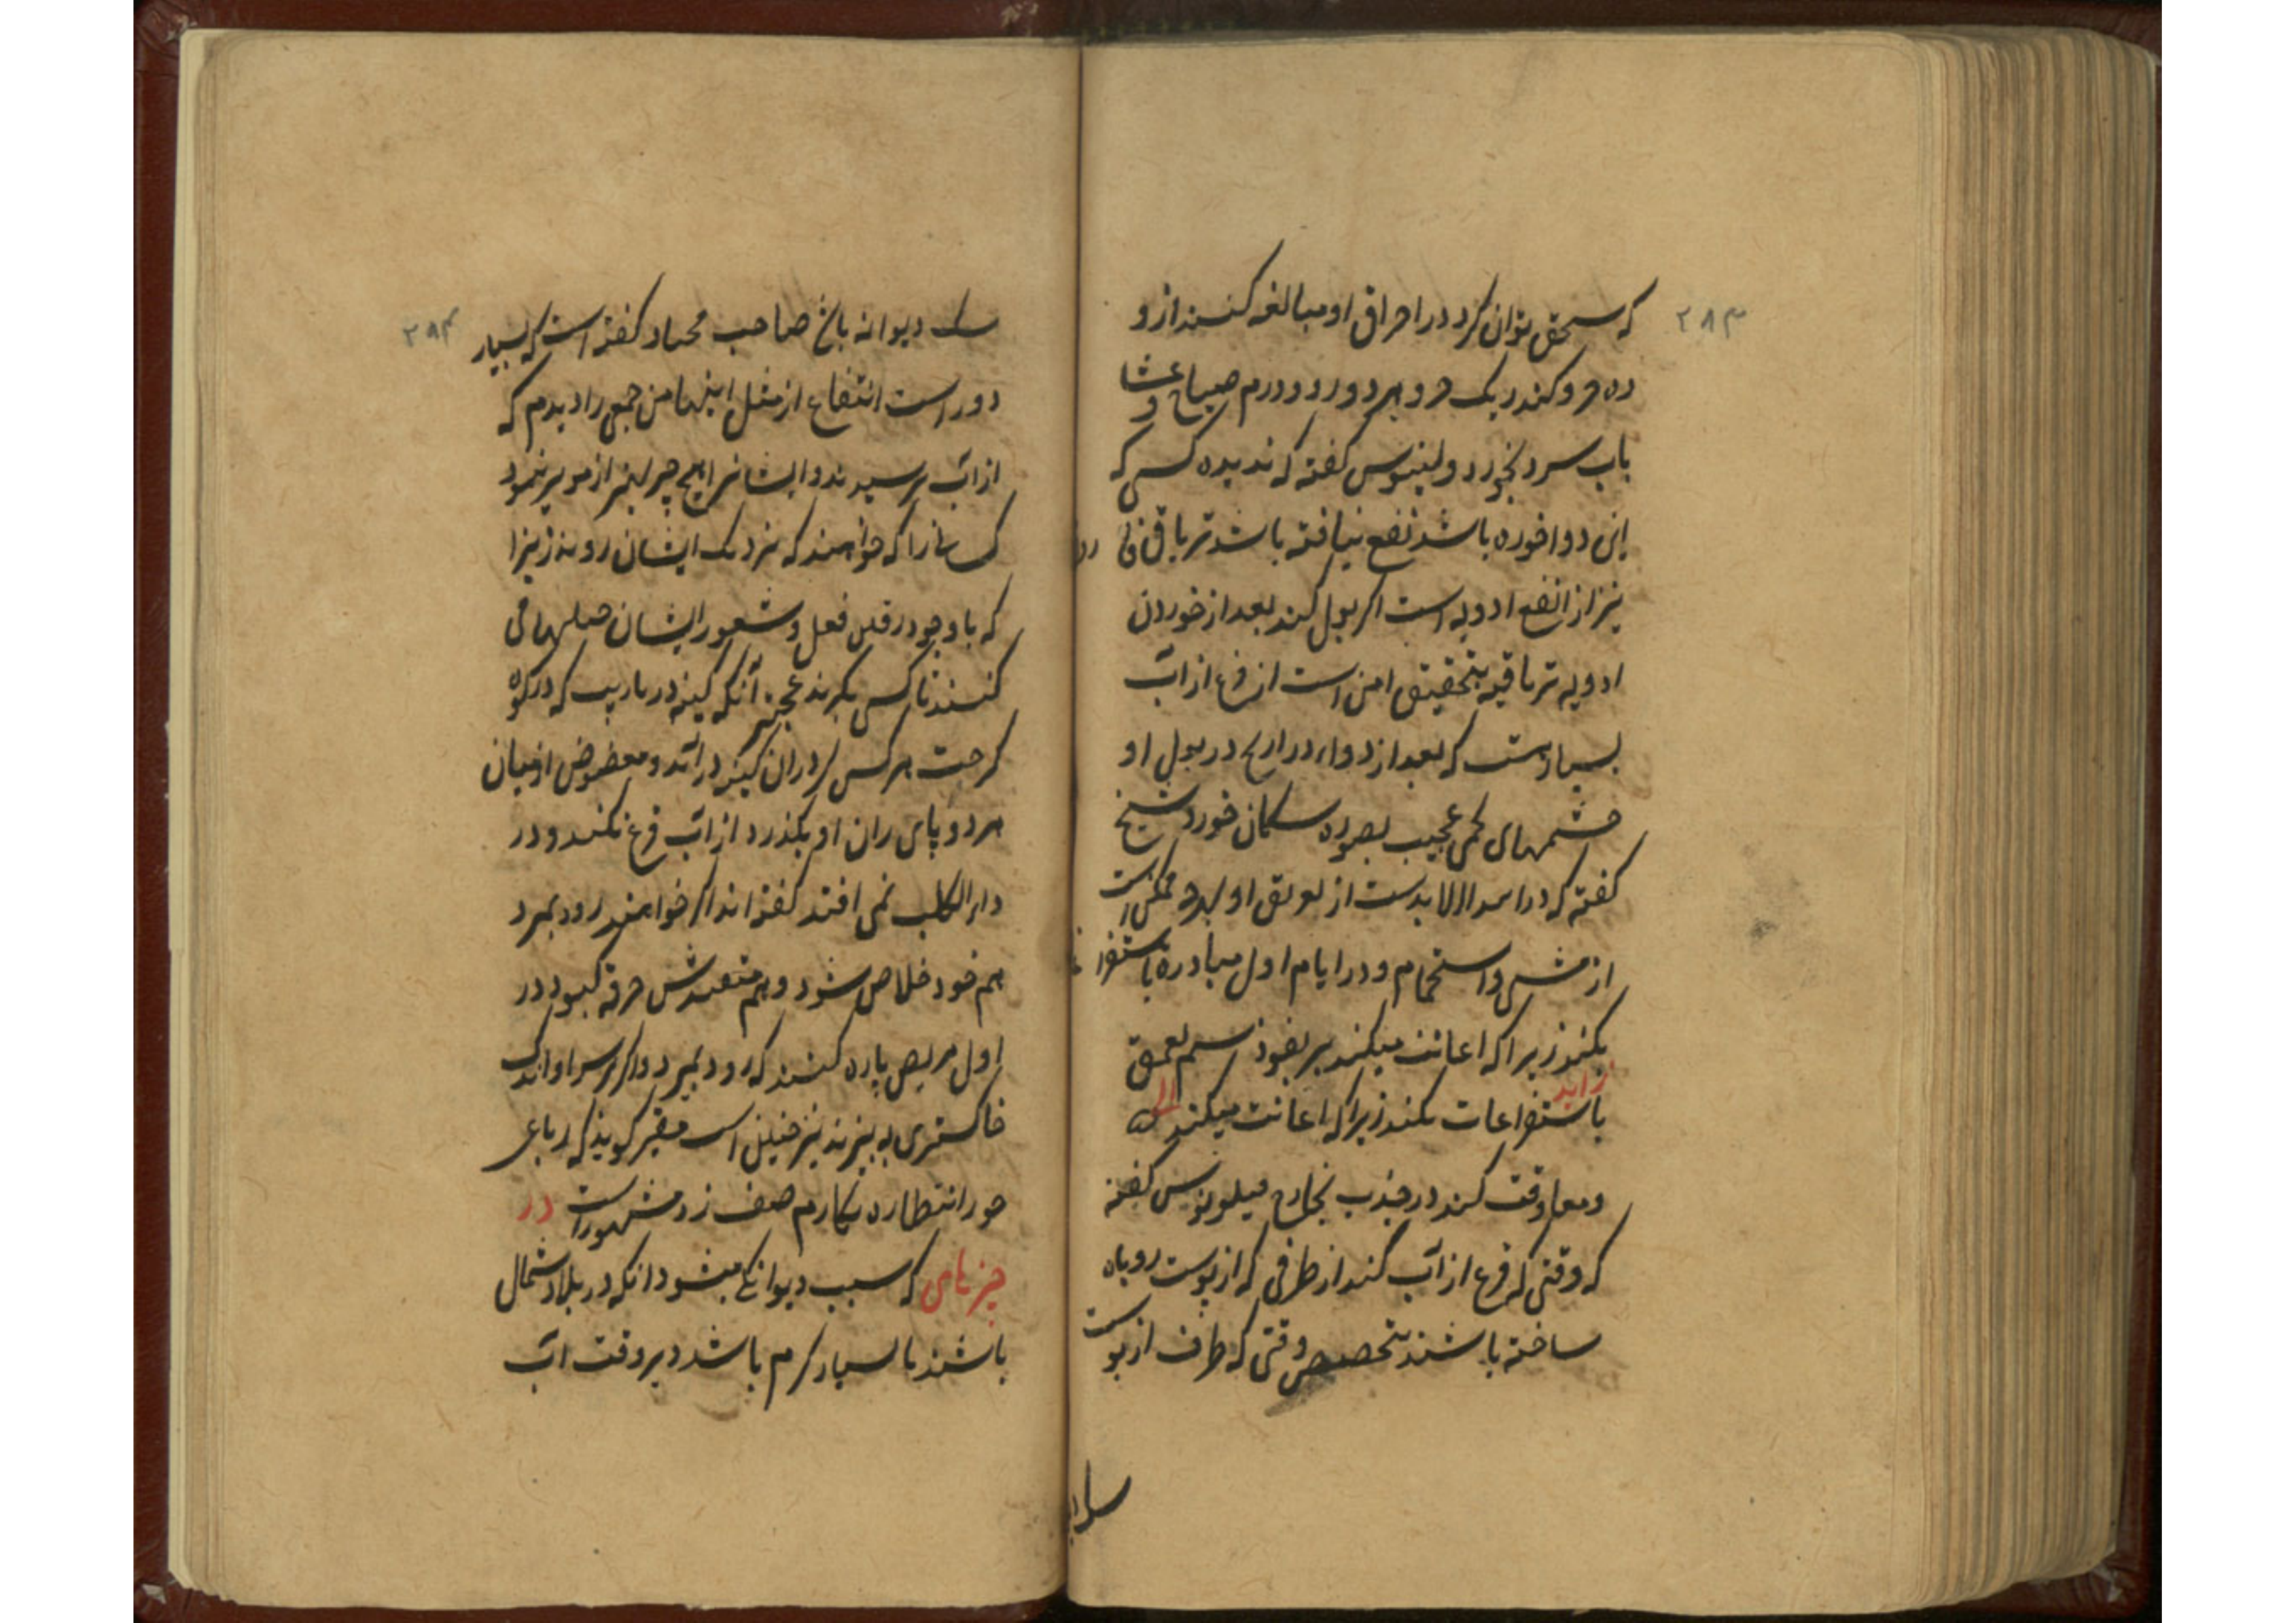 ۲۸۳
که سحق توان کرد در احراق او مبالغه کنند از و
ده جزو کندر یک جزو هر روز دو درم صباح و عشا
باب سرد بخورد و لینوس گفته که ندیده کسی که
این دوا خورده باشد نفع نیافته باشد تریاق
نیز از انفع ادویه است اکر بول کند بعد از خوردن
ادویه تریاقیه بتحقیق امن است از فزع از آب
بسیارست که بعد از دواء ذراریح در بول او
جشمهای لحمی عجیب بصوره سکان خورد شیخ
گفته که در لابدست از تعریق او ممکن است
از مشی و استحمام و در ایام اول مبادره باستفراغ
بکنند زیرا که اعانت میکند بر نفوذ سم بعمق
زاید
باستفراغات نکنند زیرا که اعانت میکند الی
و معاوقت کند در جذب بخارج فیلونوس گفته
که وقتی که فزع از آب کند از ظرفی که از پوست روباه
ساخته باشند بتخصیص وقتی که ظرف از پوست
۲۸۴
سک دیوانه باغ صاحب گفته است که بسیار
دور است انتفاع از مثل اینها من جمعی را دیدم که
از آب ترسیدند و ایشانرا هیچ چیز از نمود
کسانرا که خواهند که نزدیک ایشان روند زیرا
که با وجود فعل و شعور ایشان حیلهای
کنند تا کسی بگیرند عجبتر آنکه که در کوه
کرحت هر کس که در آن در آید و او میان
هر دو پای ران او بگذرد از آب فزع نکند و در
داء الکلب نمی افتد گفته اند اکر خواهند زود بمیرد
هم خود خلاص شود و هم متعهدش خرقه کبود در
اول مریض پاره کنند که زود بمیرد و اکر بر سر او اندک
خاکستری به بیزند نیز همین است فقیر گوید که رباعی
حورا نظاره نکارم صف زد مشهور است در
چیزهای که سبب دیوانگی میشود انکه در بلاد شمال
باشند یا بسیار کرم باشد و بر وقت آب